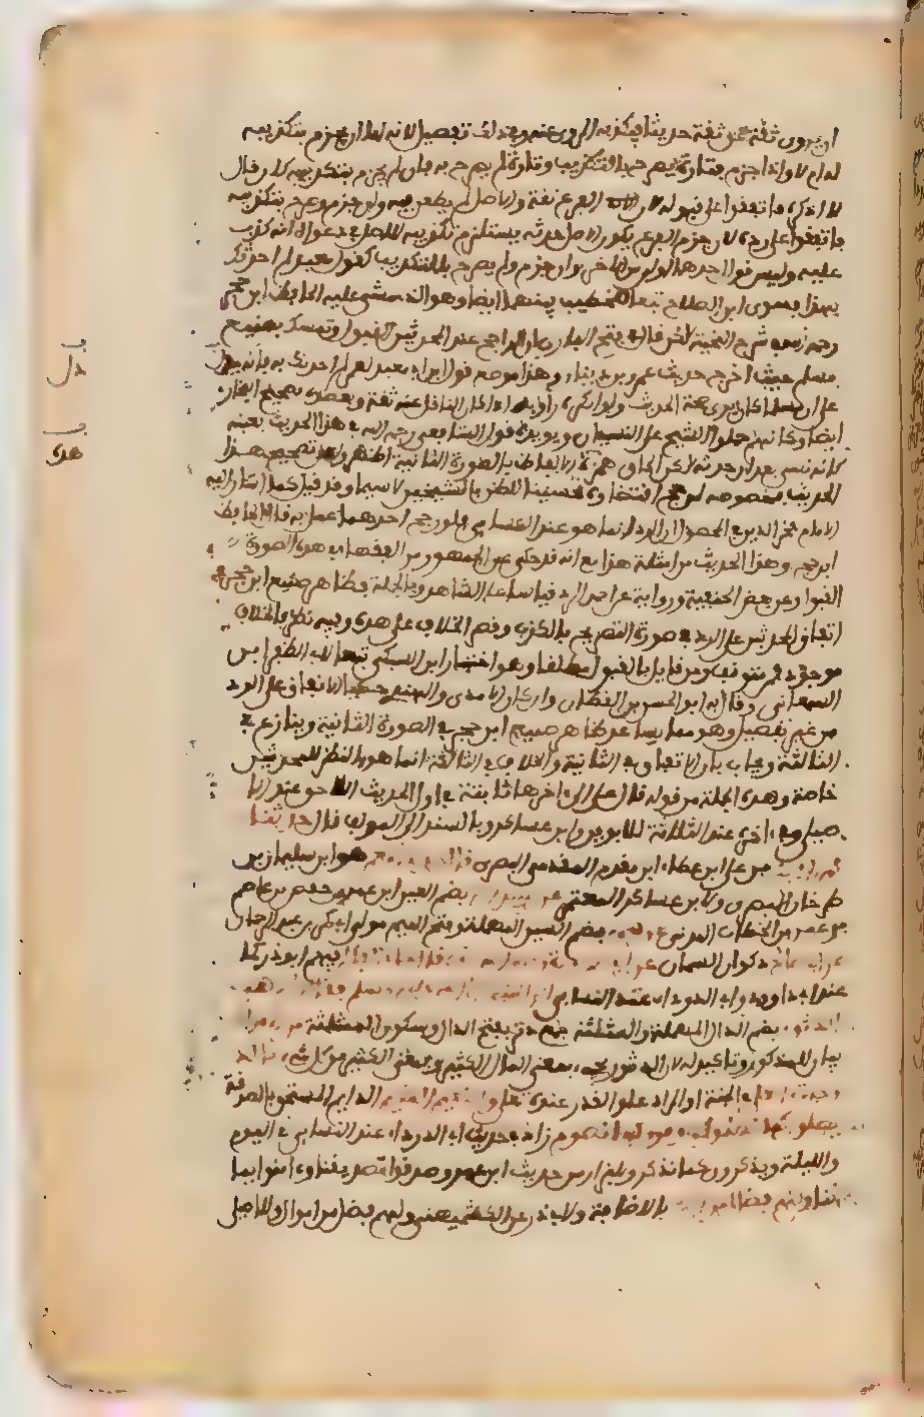 ان يروى ثقة عن ثقة حديثا فيكذبه المروى عنه وفى ذلك تفصيل لانه اما ان يجزم بتكذيبه
له ام لا واذا جزم فتارة يصرح بالتكذيب وتارة لم يصرح به فان لم يجزم بتكذيبه كان قال
لا اذكره فاتفقوا على قبوله لان الفرع ثقة والاصل لم يطعن فيه وان جزم وصرح بتكذيبه
فاتفقوا على رده لان جزم الفرع بكون الاصل حدثه يستلزم تكذيبه للاصل في دعواه انه كذب
عليه وليس قول احدهما اولى من الاخر وان جزم ولم يصرح بالتكذيب كقول معبد لم احدثك
بهذا فسوى ابن الصلاح تبعا للخطيب بينهما ايضا وهو الذى مشى عليه الحافظ ابن حجر
رحمه الله في شرح النخبة لكن قال في فتح البارى ان الراجح عند المحدثين القبول وتمسك بصنيع
مسلم حيث اخرج حديث عمرو بن دينار وهذا مع قول ابى معبد لعمرو لم احدثك به فانه دل
على ان مسلما كان يرى صحة الحديث ولو انكره راويه اذا كان الناقل عنه ثقة ويعضده تصحيح البخارى
ايضا وكانهم حملوا الشيخ على النسيان ويؤيده قول الشافعى رحمه الله في هذا الحديث بعينه
كانه نسى بعد ان حدثه لكن الحاق هذه الالفاظ بالصورة الثانية اظهر ولعل تصحيح هذا
الحديث بخصوصه لمرجح اقتضاه تحسينا للظن بالشيخين لا سيما وقد قيل كما اشار اليه
الامام فخر الدين في المحصول ان الرد انما هو عند التساوى فلو رجح احدهما عمل به قال الحافظ
ابن حجر وهذا الحديث من امثلة هذا مع انه قد حكى عن الجمهور من الفقهاء في هذه الصورة
القبول وعن بعض الحنفية ورواية عن احمد الرد قياسا على الشاهد وبالجملة فظاهر صنيع ابن حجر
اتفاق المحدثين على الرد في صورة التصريح بالكذب وقصر الخلاف على هذه وفيه نظر فالخلاف
موجود فمن متوقف ومن قايل بالقبول مطلقا وهو اختيار ابن السبكى تبعا لابى المظفر ابن
السمعانى وقال به ابو الحسن بن القطان وان كان الامدى والهندى حكيا الاتفاق على الرد
من غير تفصيل وهو مما يساعد ظاهر صنيع ابن حجر في الصورة الثانية وينازع في
الثالثة ويجاب بان الاتفاق في الثانية والخلاف في الثالثة انما هو بالنظر للمحدثين
خاصة وهذه الجملة من قوله قال على الى اخرها ثابتة في اول الحديث اللاحق عند الا
صيلى وفى اخره عند الثلاثة لابوى ذر وابن عساكر وبالسند الى المولف قال حدثنا
من على ابن عطاء ابن مقدم المقدمى البصرى هو ابن سليمان بن
طرخان البصرى ولابن عساكر المعتمر بضم العين ابن عمر بن حفص بن عاصم
بن عمر بن الخطاب المدنى بضم السين المهملة وفتح الميم مولى ابى بكر بن عبد الرحمان
ذكوان السمان فيهم ابو ذر كما
عند ابى داود وابو الدرداء عند النسائى
بضم الدال المهملة والمثلثة جمع دثر بفتح الدال وسكون المثلثة
بيان للدثور وتاكيد له لان الدثور يجىء بمعنى المال الكثير وبمعنى الكثير من كل شىء
الجنة او المراد علو القدر عنده تعالى والنعيم المقيم الدايم المستحق بالصدقة
يصلون كما نصلى ويصومون كما نصوم زاد في حديث ابى الدرداء عند النسائى في اليوم
والليلة ويذكرون كما نذكر وللبزار من حديث ابن عمر وصدقوا تصديقنا وءامنوا ايماننا
بالاضافة ولابى ذر عن الكشميهنى ولهم فضل من اموال وللاصيلى
هدى